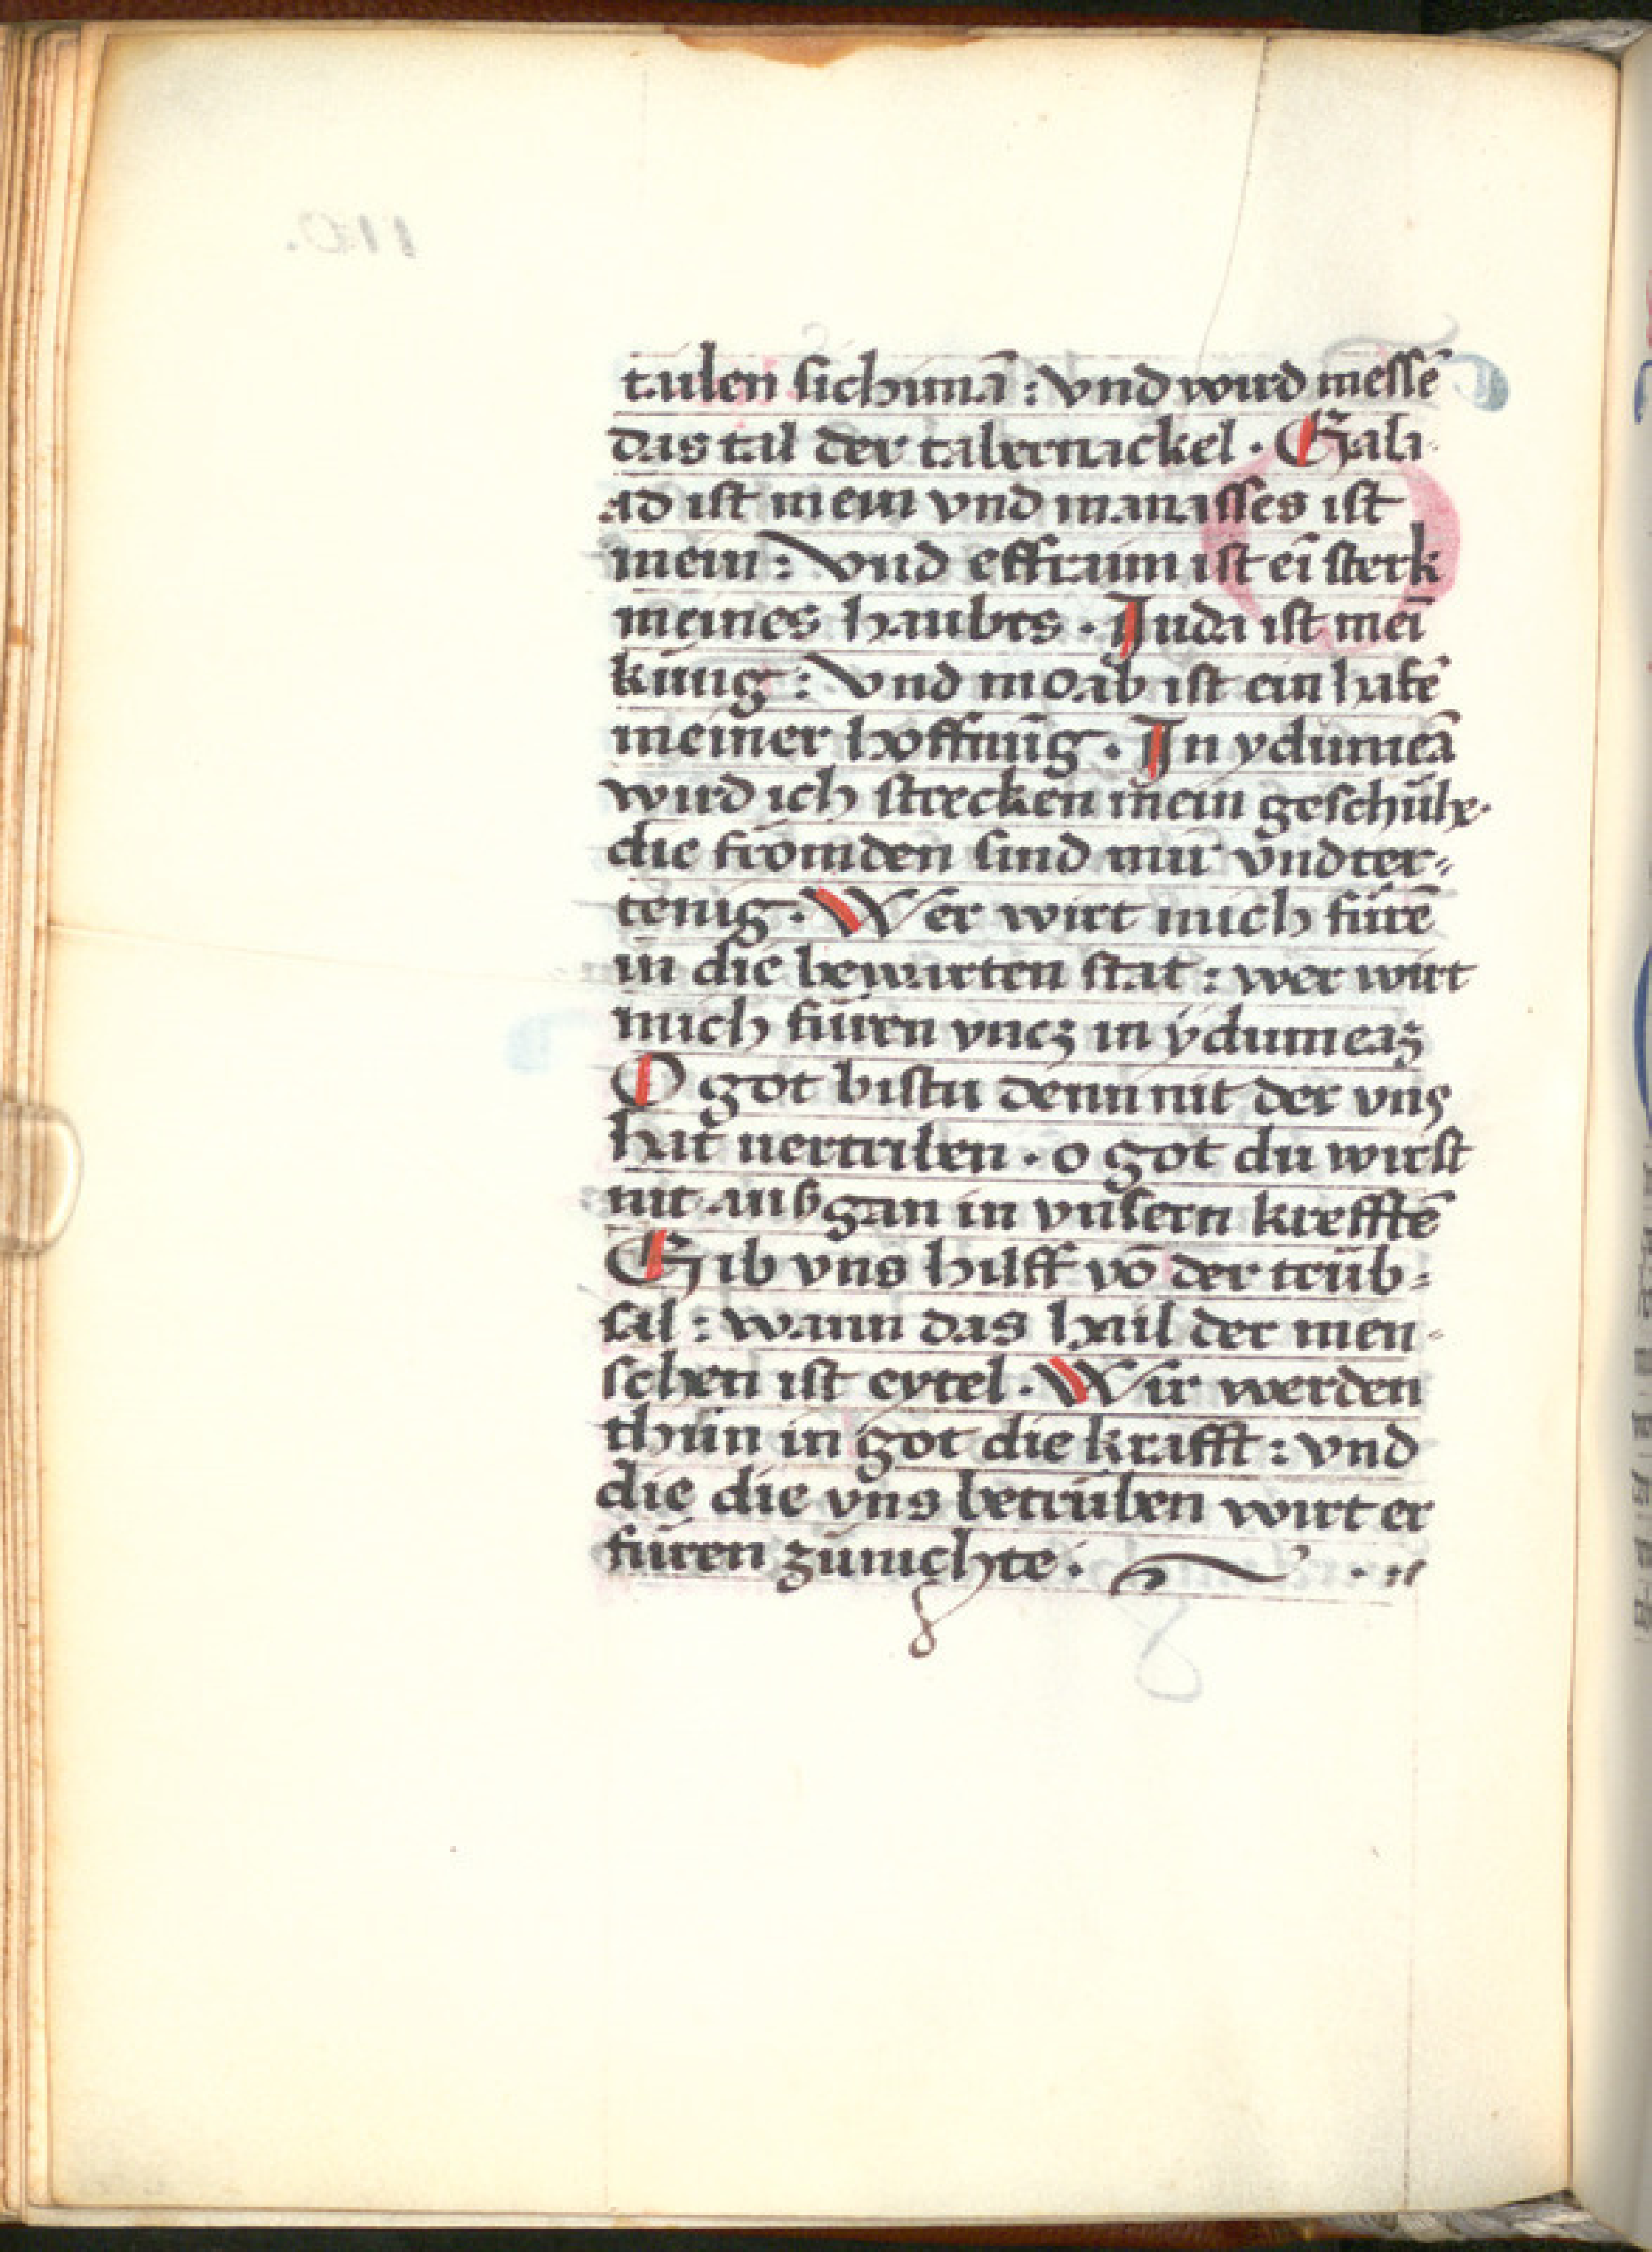 tailen sichimā : vnd wird messē
das tal der tabernackel · Gali-
ad ist mein vnd manasses ist
mein : vnd effraim ist eī sterk
meines haubts · Juda ist meī
kúnig : vnd moab ist ein hafē
meiner hoffnūg · In ydumeā
wird ich strecken mein geschúhe·
die frömden sind mir vndter-
tenig · Wer wirt mich fúrē
in die bewarten stat : wer wirt
mich fúren vncz in ydumeaz
O got bistu denn nit der vns
hat uertriben · o got du wirst
nit außgan in vnsern krefftē
Gib vns hilff vō der trúb-
sal : wann das hail der men-
schen ist eytel · Wir werden
thun in got die krafft : vnd
die die vns betrúben wirt er
fúren zunichte ·